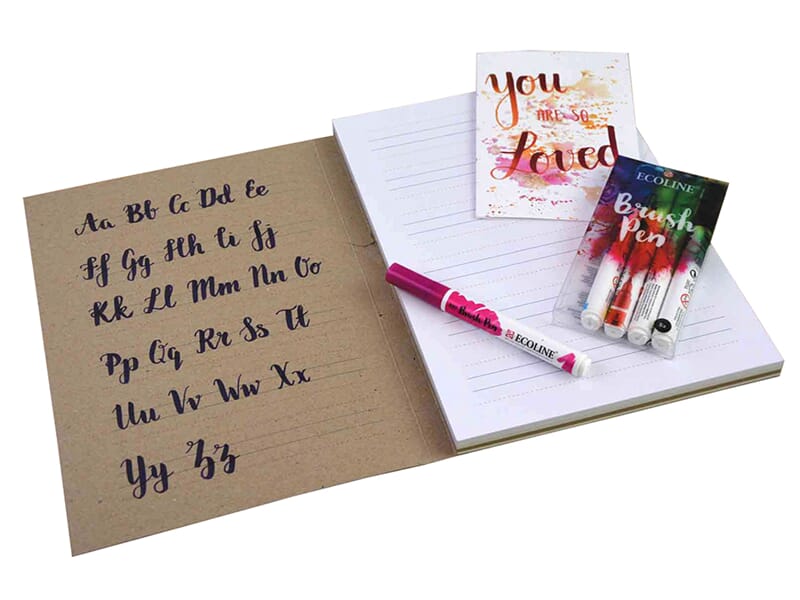 Aa Bb Cc Dd Ee
Ff Gg Hh Ii Jj
Kk Ll Mm Nn Oo
Pp Qq Rr Ss Tt
Uu Vv Ww Xx
Yy Zz
You
ARE SO
Loved
ECOLINE
Brush
Pen
Brush Pen
ECOLINE